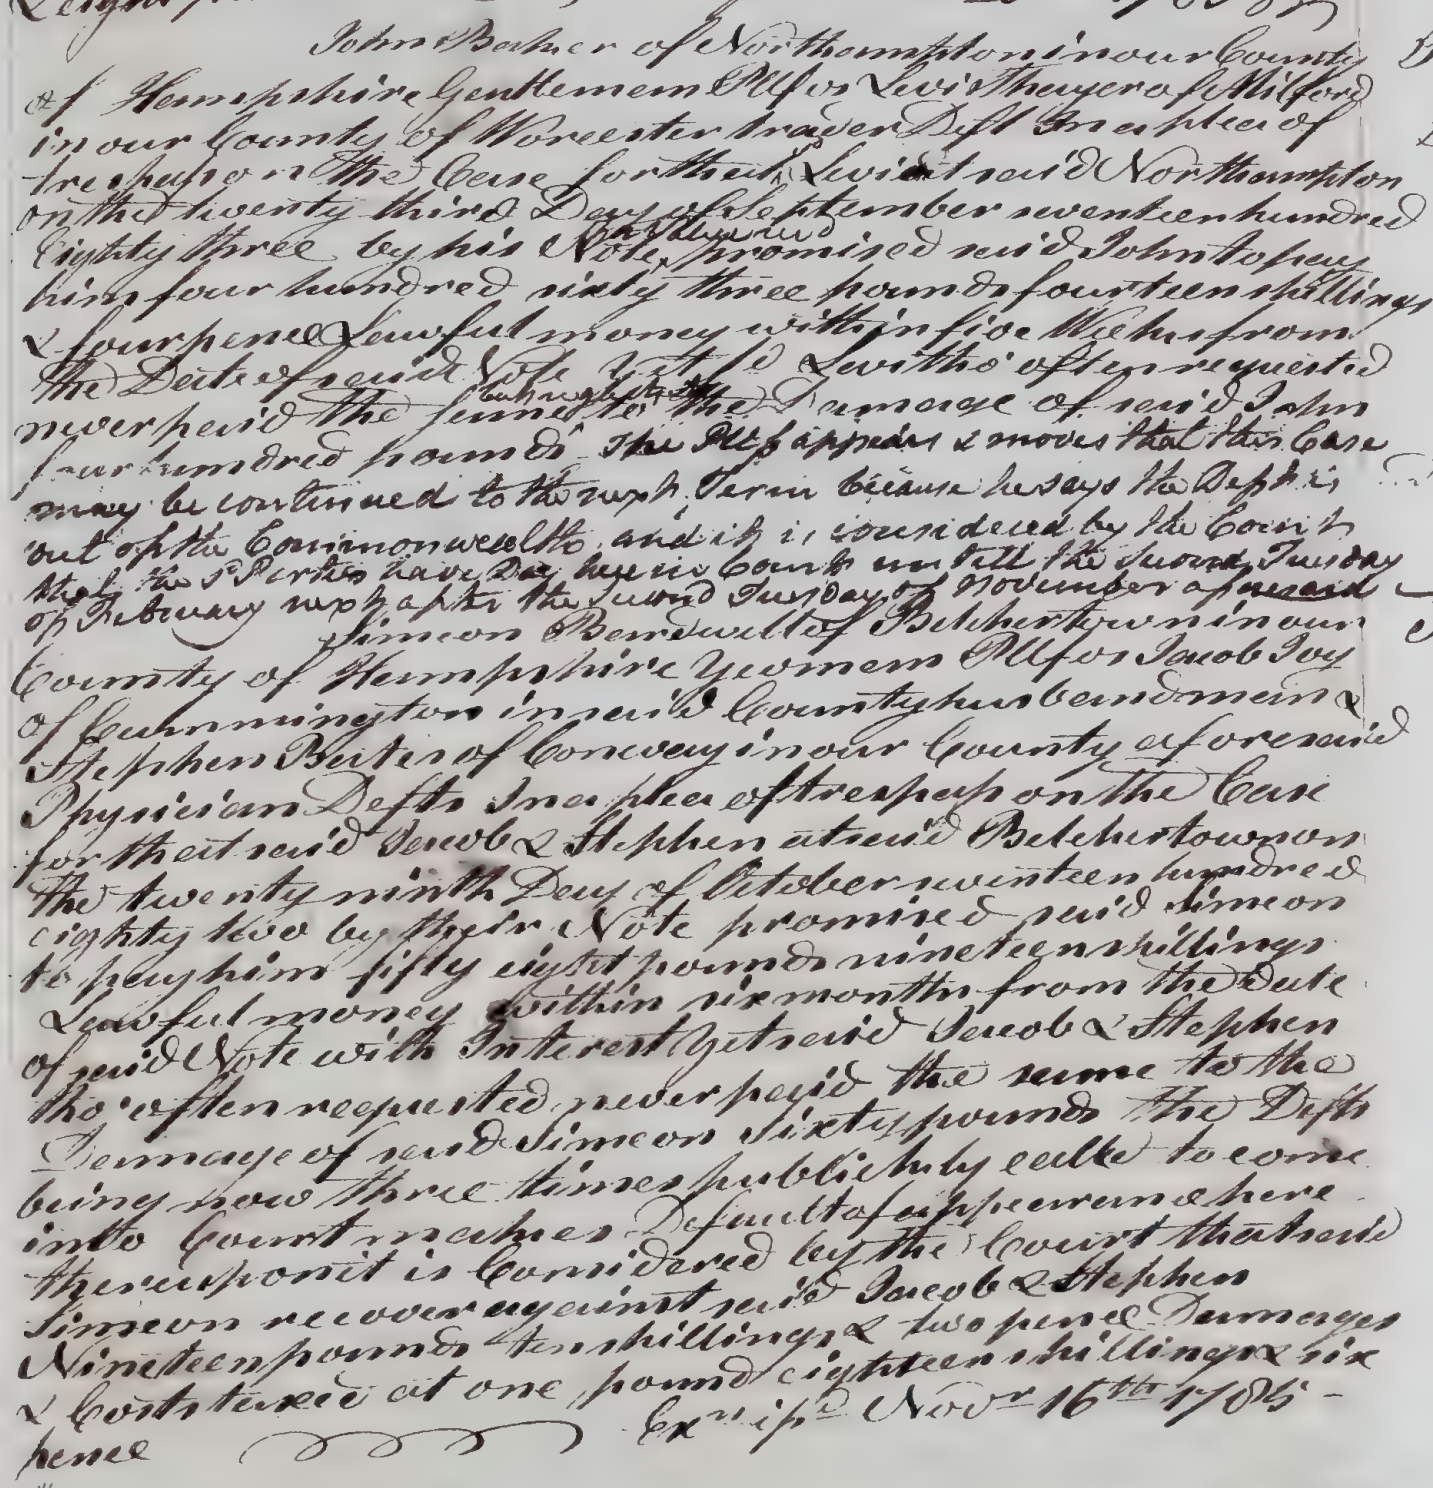 John Baker of Northampton in our County
of Hampshire Gentleman Pltf vs Levi Thayer of Milford
in our County of Worcester trader Deft In a plea of
trespass on the Case for that sd Levi at said Northampton
on the twenty third Day of September seventeen hundred
Eighty three by his Note promised said John to pay
him four hundred sixty three pounds fourteen shillings
& four pence Lawful money within five Weeks from
the Date of said Note Yet sd Levi tho' often requested
never paid the same to the Damage of said John
four hundred pounds The Pltf appears & moves that this Case
may be continued to the next Term because he says the Deft is
out of the Commonwealth and it is considered by the Court
that the sd Parties have Day here in Court untill the second Tuesday
of February next after the second Tuesday of November aforesaid
Simeon Bardwell of Belchertown in our
County of Hampshire Yeoman Pltf vs Jacob Joy
of Cummington in said County husbandman &
Stephen Bates of Conway in our County aforesaid
Physician Defts In a plea of trespass on the Case
for that said Jacob & Stephen at said Belchertown on
the twenty ninth Day of October seventeen hundred
eighty two by their Note promised said Simeon
to pay him fifty eight pounds nineteen shillings
Lawful money within six months from the Date
of said Note with Interest Yet said Jacob & Stephen
tho' often requested never paid the same to the
Damage of said Simeon sixty pounds The Defts
being now three times publickly calld to come
into Court makes Default of appearance here
thereupon it is Considered by the Court that said
Simeon recover against said Jacob & Stephen
Nineteen pounds ten shillings & two pence Damages
& Costs taxed at one pound eighteen shillings & six
pence Exn ipd Novr 16th 1785